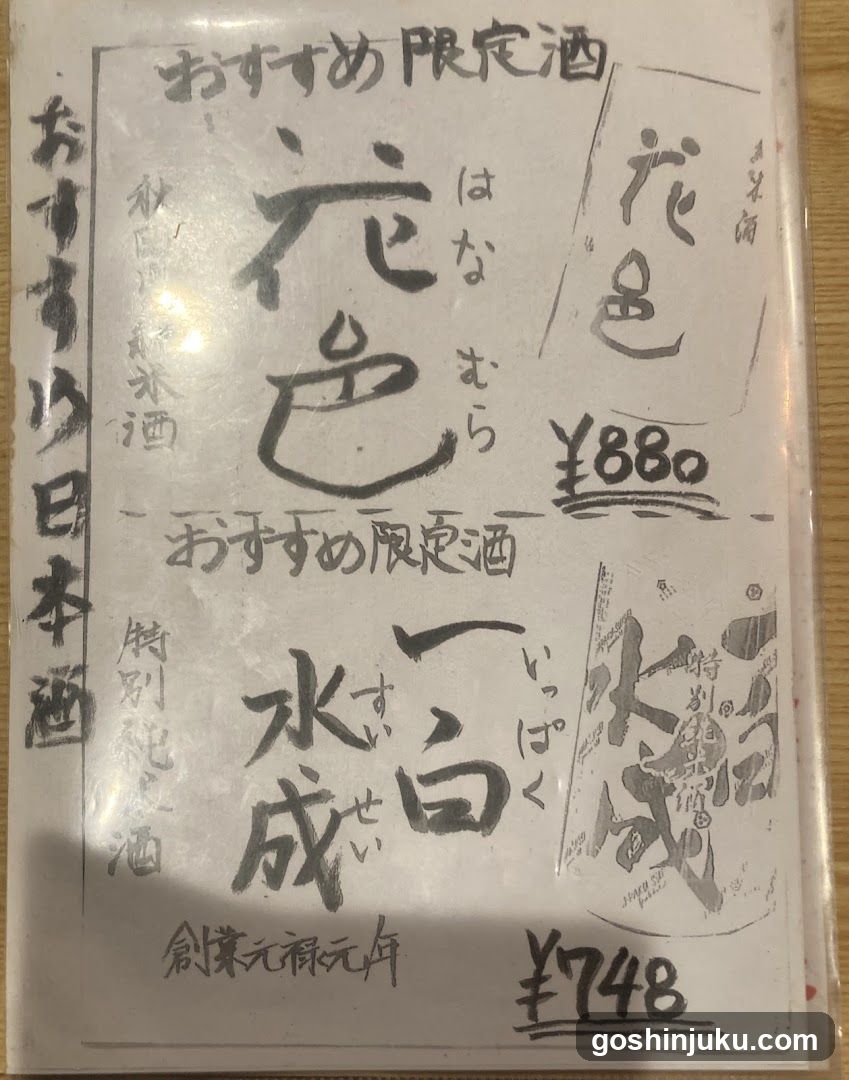 おすすめ日本酒
おすすめ限定酒
花邑
はなむら
秋田 純米酒
花邑
米酒
¥880
おすすめ限定酒
一白
いっぱく
水成
すいせい
特別純米酒
一白
水成
特別純米酒
創業元禄元年
¥748
goshinjuku.com